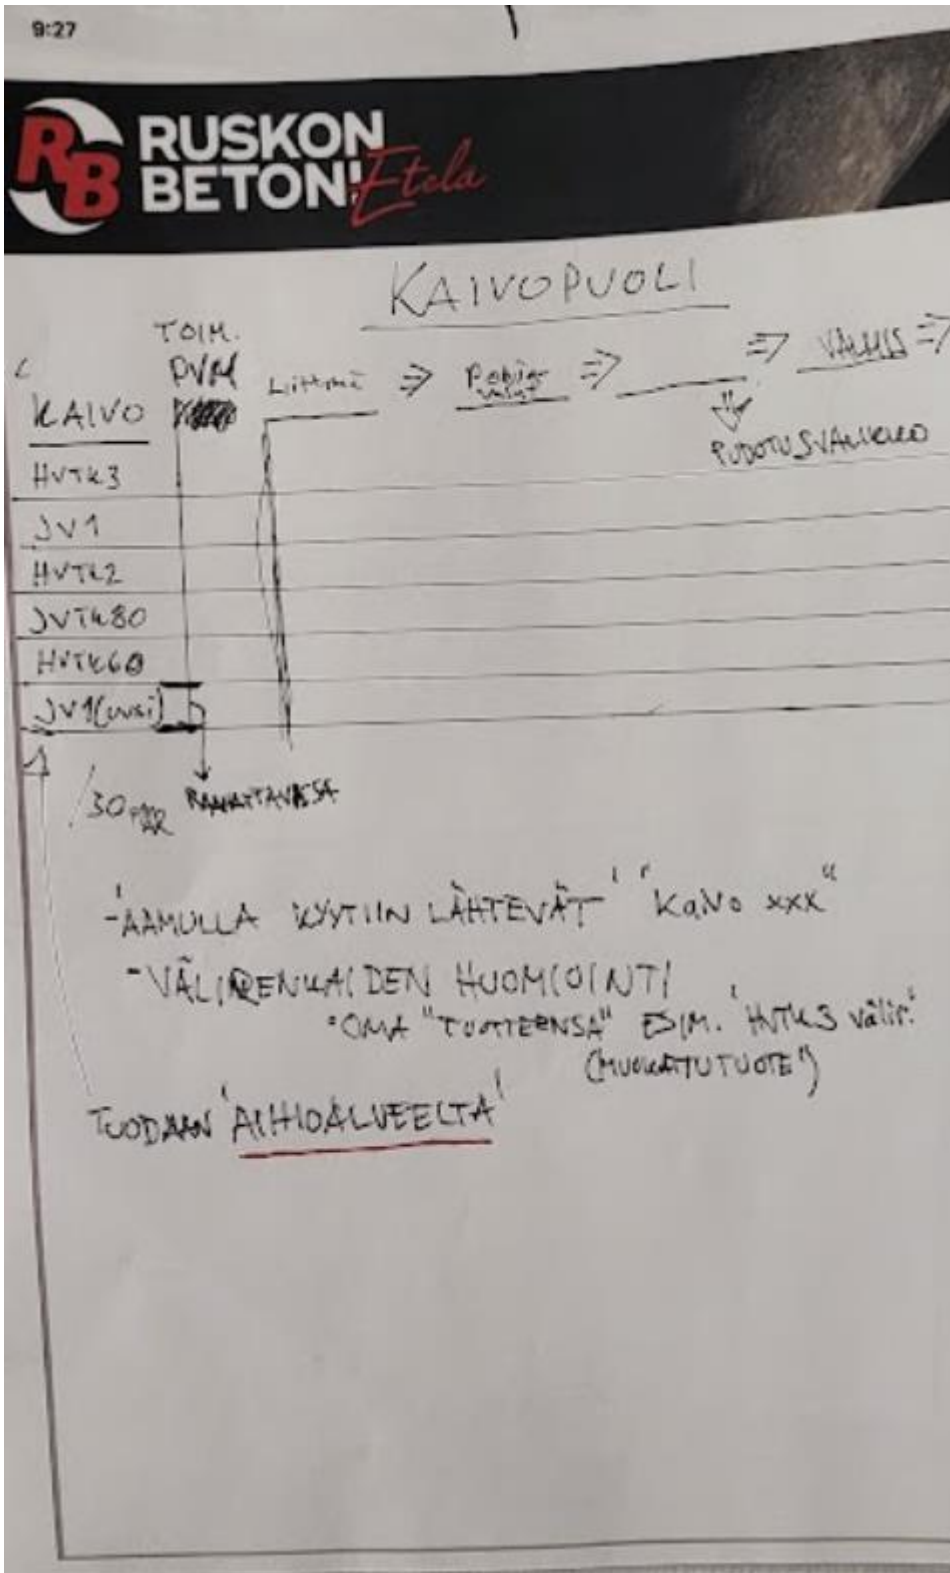 9:27
RB RUSKON
BETONI Etelä
KAIVOPUOLI
TOIM.
PVM
KAIVO
Liittymä ⇒ Pohja-
valut ⇒ ⇒ VALMIS ⇒
PUDOTUSVALIKKO
HVTK3
JV1
HVTK2
JVTK80
HVTK60
JV1(uusi)
/30
-'AAMULLA KYYTIIN LÄHTEVÄT' "KaiVo xxx"
-VÄLIRENKAIDEN HUOMIOINTI
•OMA "TUOTTEENSA" ESIM. 'HVTK3 välir.'
(MUOKATTU TUOTE")
TUODAAN 'AIHIOALUEELTA'